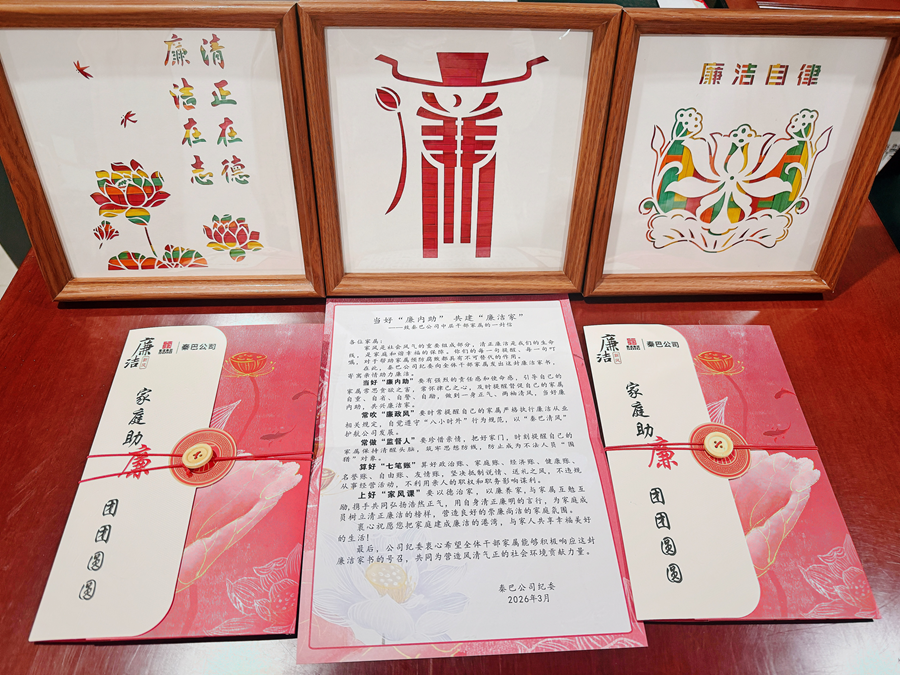 清正在德
廉洁在志
廉
廉洁自律
廉洁
秦巴公司
家庭助廉
团团圆圆
当好“廉内助” 共建“廉洁家”
——致秦巴公司中层干部家属的一封信
各位家属:
家风是社会风气的重要组成部分,清正廉洁是我们的生命
线,是家庭和谐幸福的保障。你们的每一份提醒,每一句叮
嘱,对于帮助家属预防腐败都具有不可替代的作用。
在此,公司纪委向全体干部家属发出这封廉洁家书,
寄寓亲情助力廉洁。
当好“廉内助”要有强烈的责任感和使命感,引导自己的
家属常思贪欲之害,常怀律己之心,及时提醒督促自己的家属
自重、自省、自警、自励,做到一身正气、两袖清风,当好廉
内助,共兴廉洁家。
常吹“廉政风”要时常提醒自己的家属严格执行廉洁从业
相关规定,自觉遵守“八小时外”行为规范,以“秦巴清风”
护航公司发展。
常做“监督人”要珍惜亲情,把好家门,时刻提醒自己的
家属保持清醒头脑,筑牢思想防线,防止成为不法人员“围
猎”对象。
算好“七笔账”算好政治账、家庭账、经济账、健康账、
名誉账、自由账、友情账,坚决抵制说情、送礼之风,不违规
从事经营活动,不利用亲人的职权和职务影响谋利。
上好“家风课”要以德治家,以廉养家,与家属互勉互
励,携手共同弘扬浩然正气,用自身清正廉明的言行,为家庭成
员树立清正廉洁的榜样,营造良好的崇廉尚洁的家庭氛围。
衷心祝愿您把家庭建成廉洁的港湾,与家人共享幸福美好
的生活!
最后,公司纪委衷心希望全体干部家属能够积极响应这封
廉洁家书的号召,共同为营造风清气正的社会环境贡献力量。
秦巴公司纪委
2026年3月
廉洁
秦巴公司
家庭助廉
团团圆圆